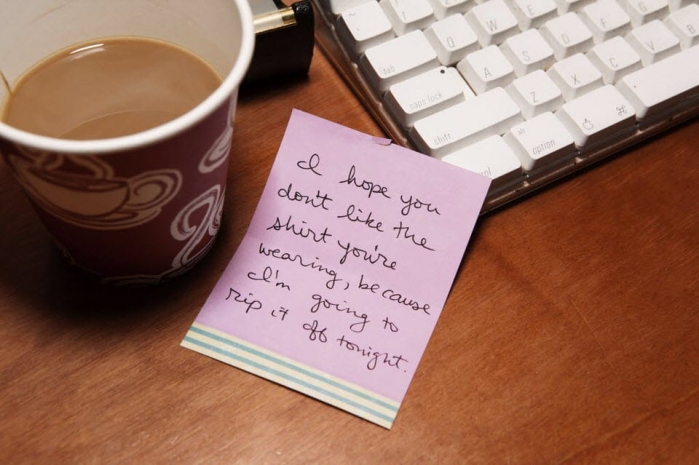 I hope you
don't like the
shirt you're
wearing, because
I'm going to
rip it off tonight.
Q W E R
A S D F G
Z X C V B
tab
caps lock
shift
option